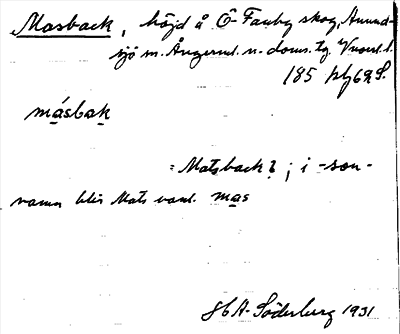 Masback, höjd å Ö-Fanby skog, Anund-
sjö sn. Ångerml. n. doms. tg. Vnorrl. l.
185 bl 69 S.
másbak
= Matsback?; i -son-
namn blir Mats vanl. mas
J A. Söderberg 1931